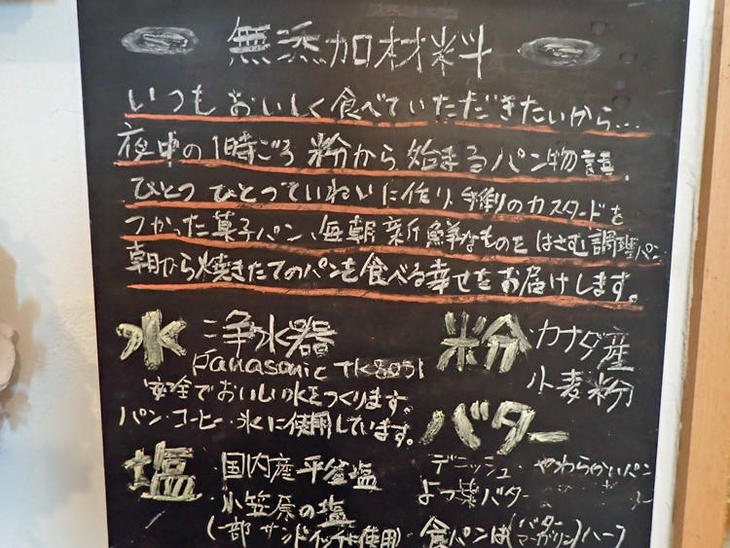 無添加材料
いつもおいしく食べていただきたいから…
夜中の1時ごろ 粉から始まるパン物語。
ひとつひとつていねいに作り、手作りのカスタードを
つかった菓子パン、毎朝新鮮なものをはさむ調理パン
朝から焼きたてのパンを食べる幸せをお届けします。
水 浄水器
Panasonic TK8051
安全でおいしい水をつくります。
パン・コーヒー・氷に使用しています。
塩 国内産平釜塩
小笠原の塩
(一部サンドイッチに使用)
粉 カナダ産
小麦粉
バター
デニッシュ・やわらかいパン
よつ葉バター
食パンは(バター マーガリン)ハーフ